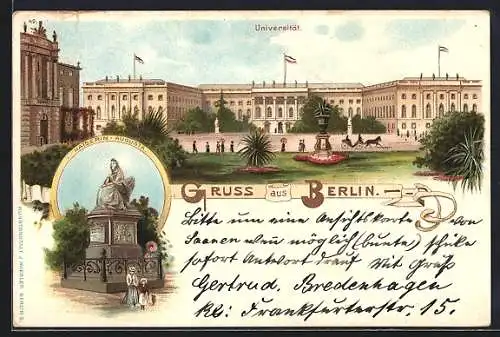 Universität.
KAISERIN-AUGUSTA
GRUSS aus BERLIN.
Bitte um eine Ansichtskarte von
Saanen wenn möglich (bunte) schike
sofort Antwort drauf Mit Gruß
Gertrud, Bredenhagen
kl: Frankfurterstr. 15.